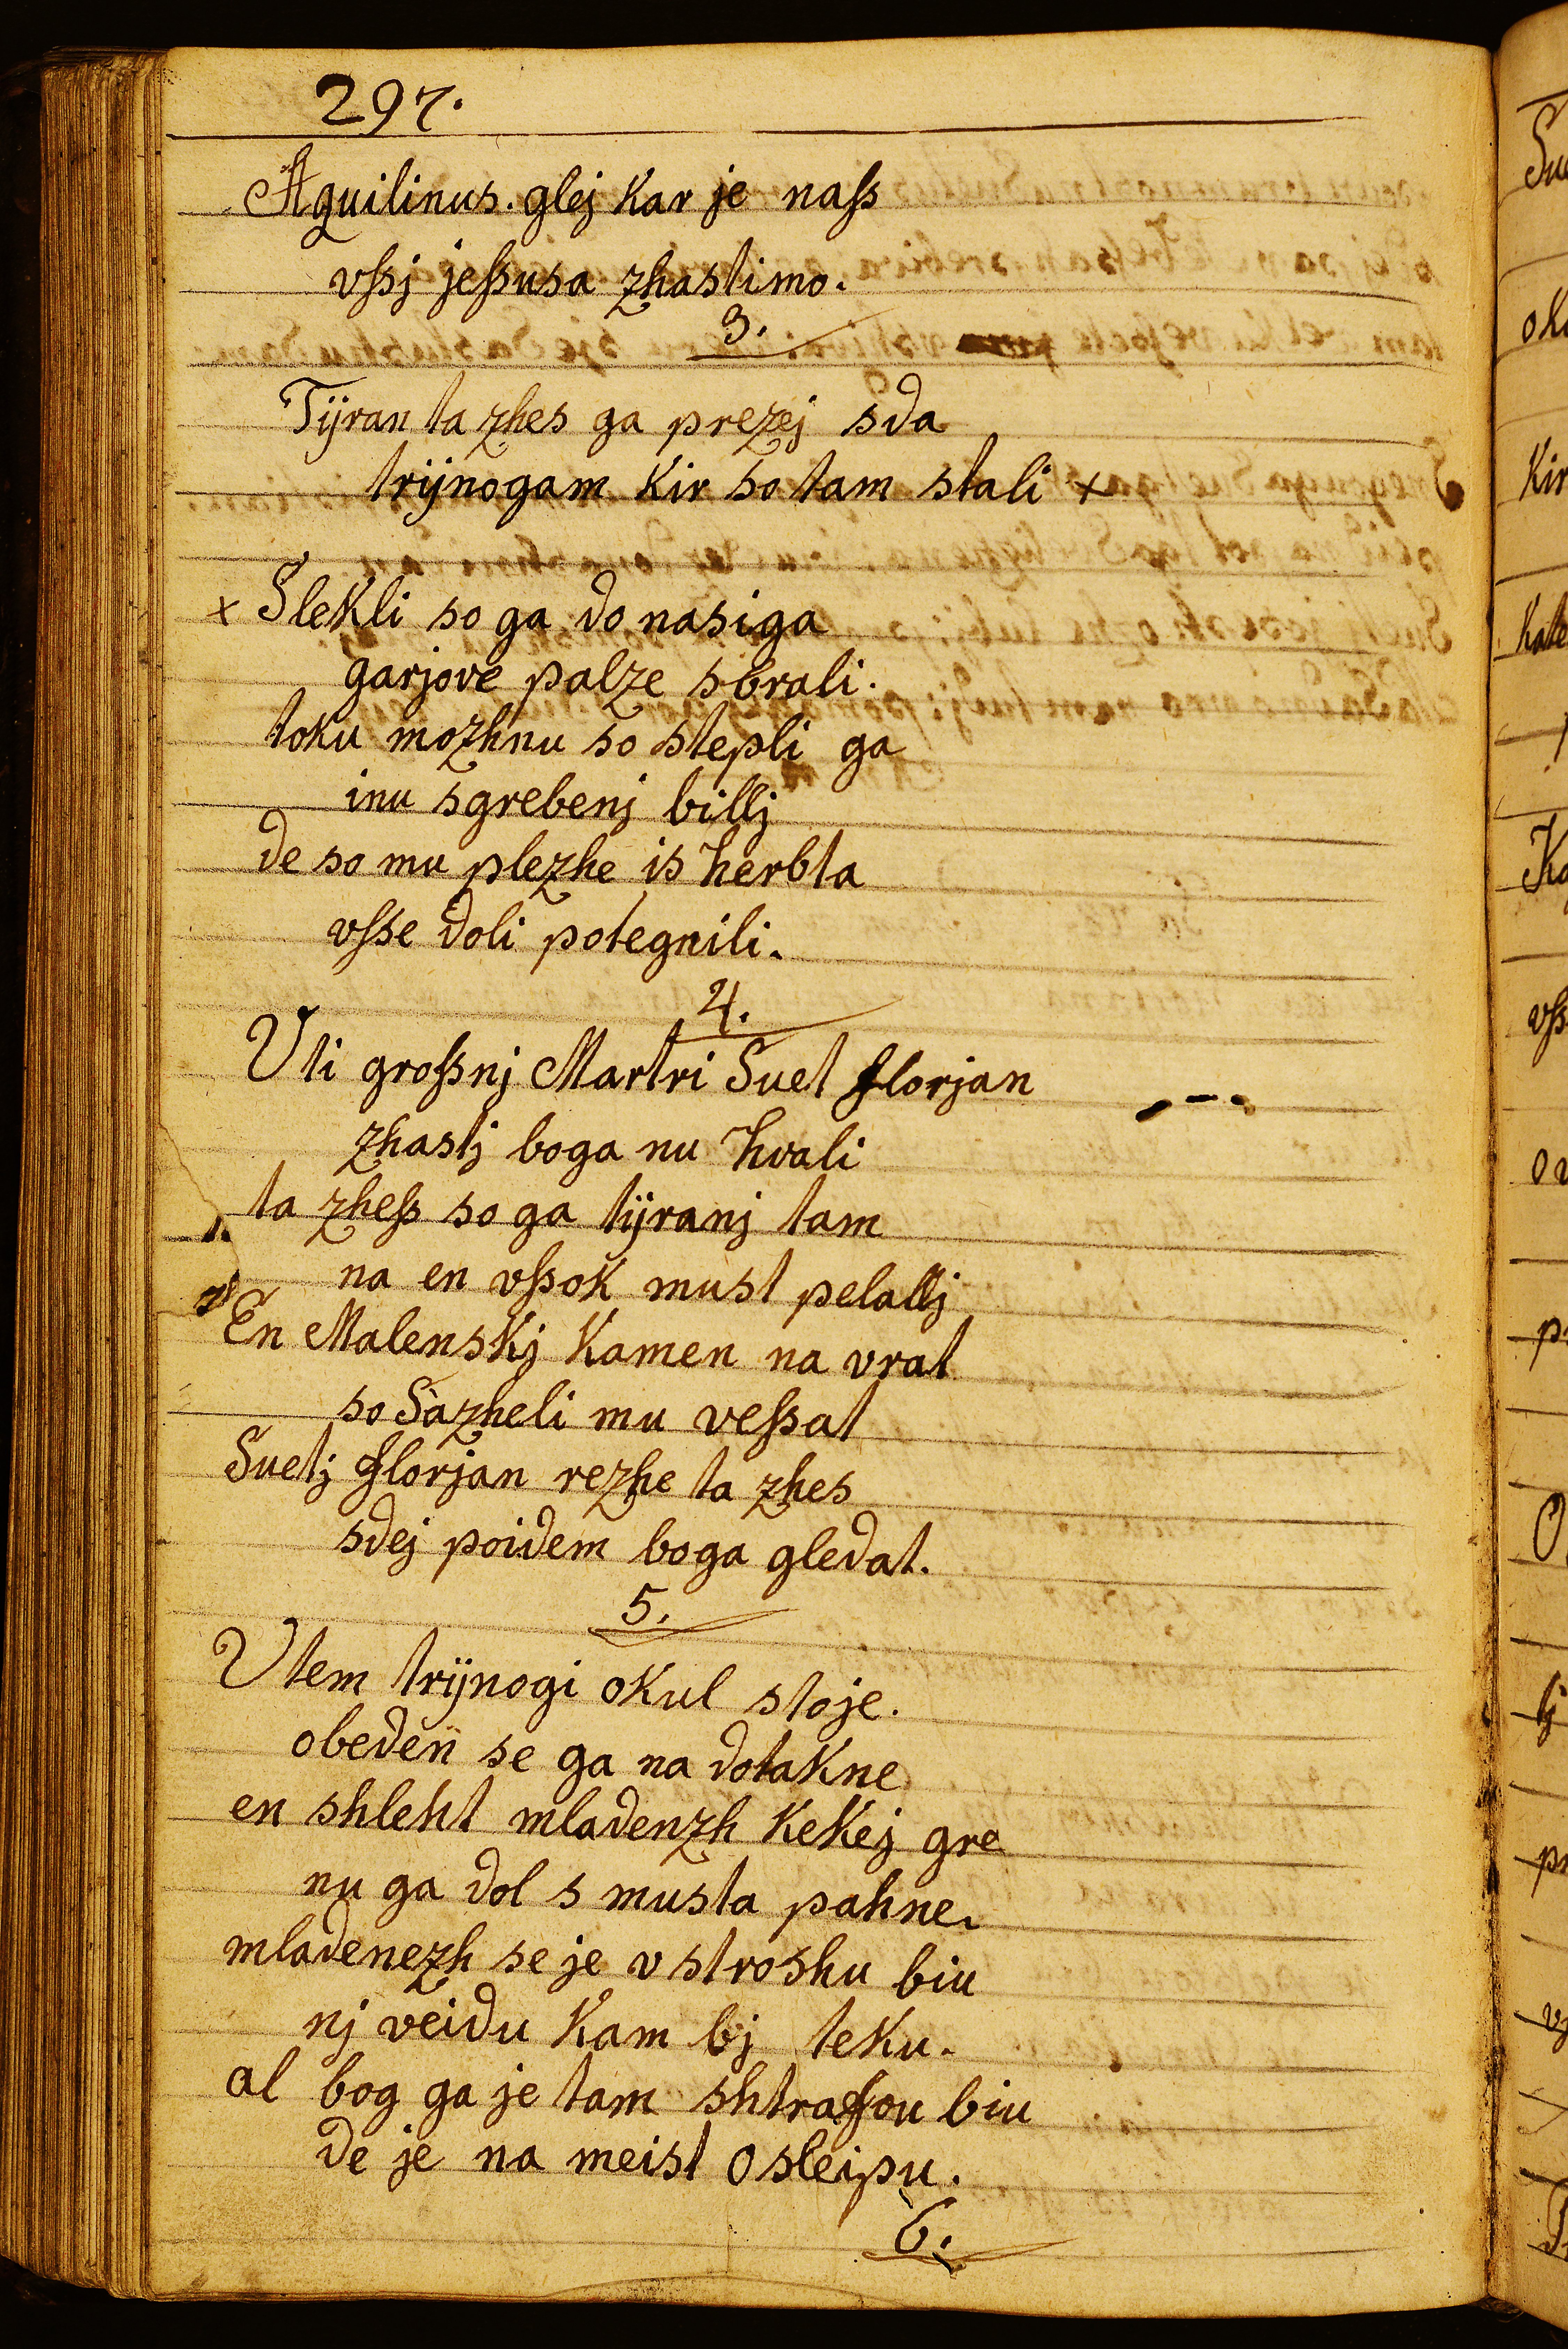 297.
Aquilinus. glej kar je naſs
vſsj jeſsusa zhastimo.
3.
Tÿran ta zhes ga prezej sda
trijnogam kir so tam stali +
+ Slekli so ga do nasiga
garjove palze sbrali.
toku mozhnu so stepli ga
inu sgrebenj billj
de so mu plezhe is herbta
vſse doli potegnili.
4.
Vti groſsnj Martri Suet florjan
zhastj boga nu hvali
ta zheſs so ga tÿranj tam
na en vſsok must pelallj
En Malenskj Kamen na vrat
so Sazheli mu veſsat
Suetj florjan rezhe ta zhes
sdej poidem boga gledat.
5.
Vtem trijnogi okul stoje.
obeden se ga na dotakne
en shleht mladenzh KeKej gre
nu ga dol s musta pahne.
mladenezh se je v stroshu biu
nj veidu Kam bj teku.
al bog ga je tam shtrafou biu
de je na meist osleipu.
6.